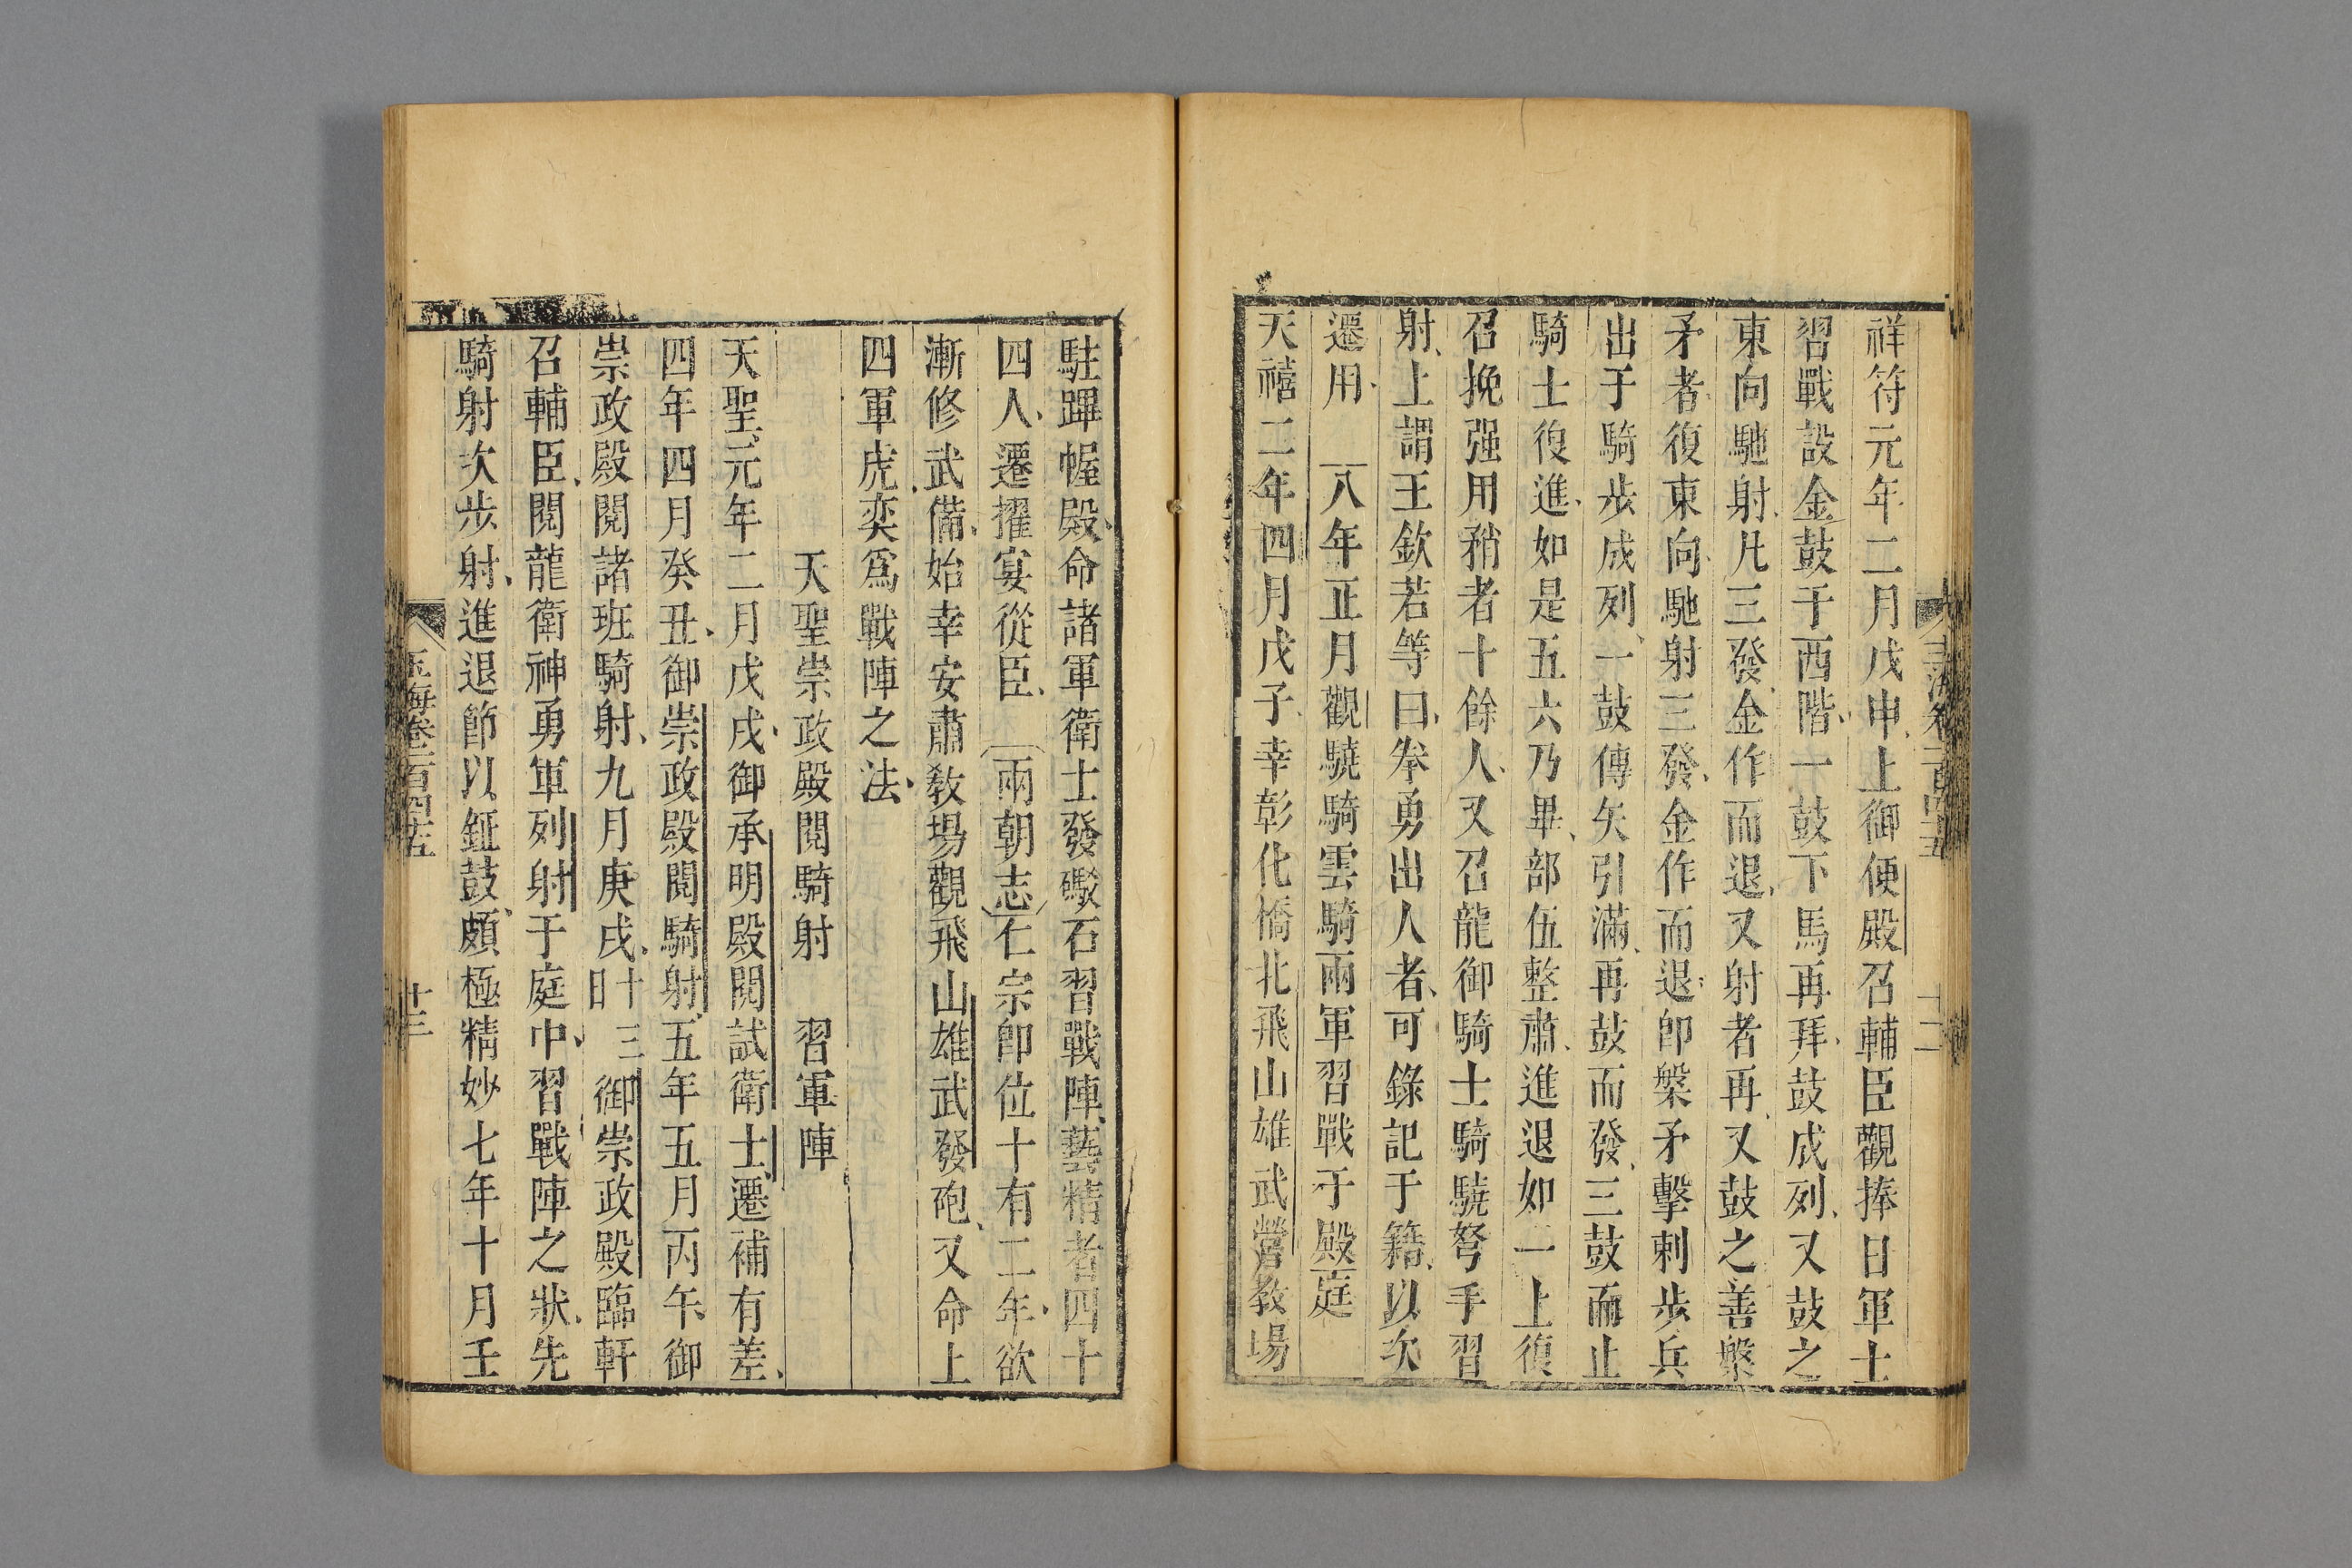 祥符元年二月戊申上御便殿召輔臣觀捧日軍士
習戰設金鼓于西階一鼓下馬再拜鼓成列又鼓之
東向馳射凡三發金作而退又射者再又鼓之善槃
矛者復東向馳射三發金作而退卽槃矛擊刺步兵
出于騎步成列一鼓傳矢引滿再鼓而發三鼓而止
騎士復進如是五六乃畢部伍整肅進退如一上復
召挽强用矟者十餘人又召龍御騎士騎驍弩手習
射上謂王欽若等曰拳勇出人者可錄記于籍以次
遷用 八年正月觀驍騎雲騎兩軍習戰于殿庭
天禧二年四月戊子幸彰化橋北飛山雄武營教場
駐蹕幄殿命諸軍衛士發礮石習戰陣藝精者四十
四人遷擢宴從臣 兩朝志仁宗卽位十有二年欲
漸修武備始幸安肅教場觀飛山雄武發砲又命上
四軍虎奕爲戰陣之法
天聖崇政殿閱騎射 習軍陣
天聖元年二月戊戌御承明殿閱試衛士遷補有差
四年四月癸丑御崇政殿閱騎射五年五月丙午御
崇政殿閱諸班騎射九月庚戌十三日御崇政殿臨軒
召輔臣閱龍衛神勇軍列射于庭中習戰陣之狀先
騎射次步射進退節以鉦鼓頗極精妙七年十月壬
玉海卷一百四十五
十三